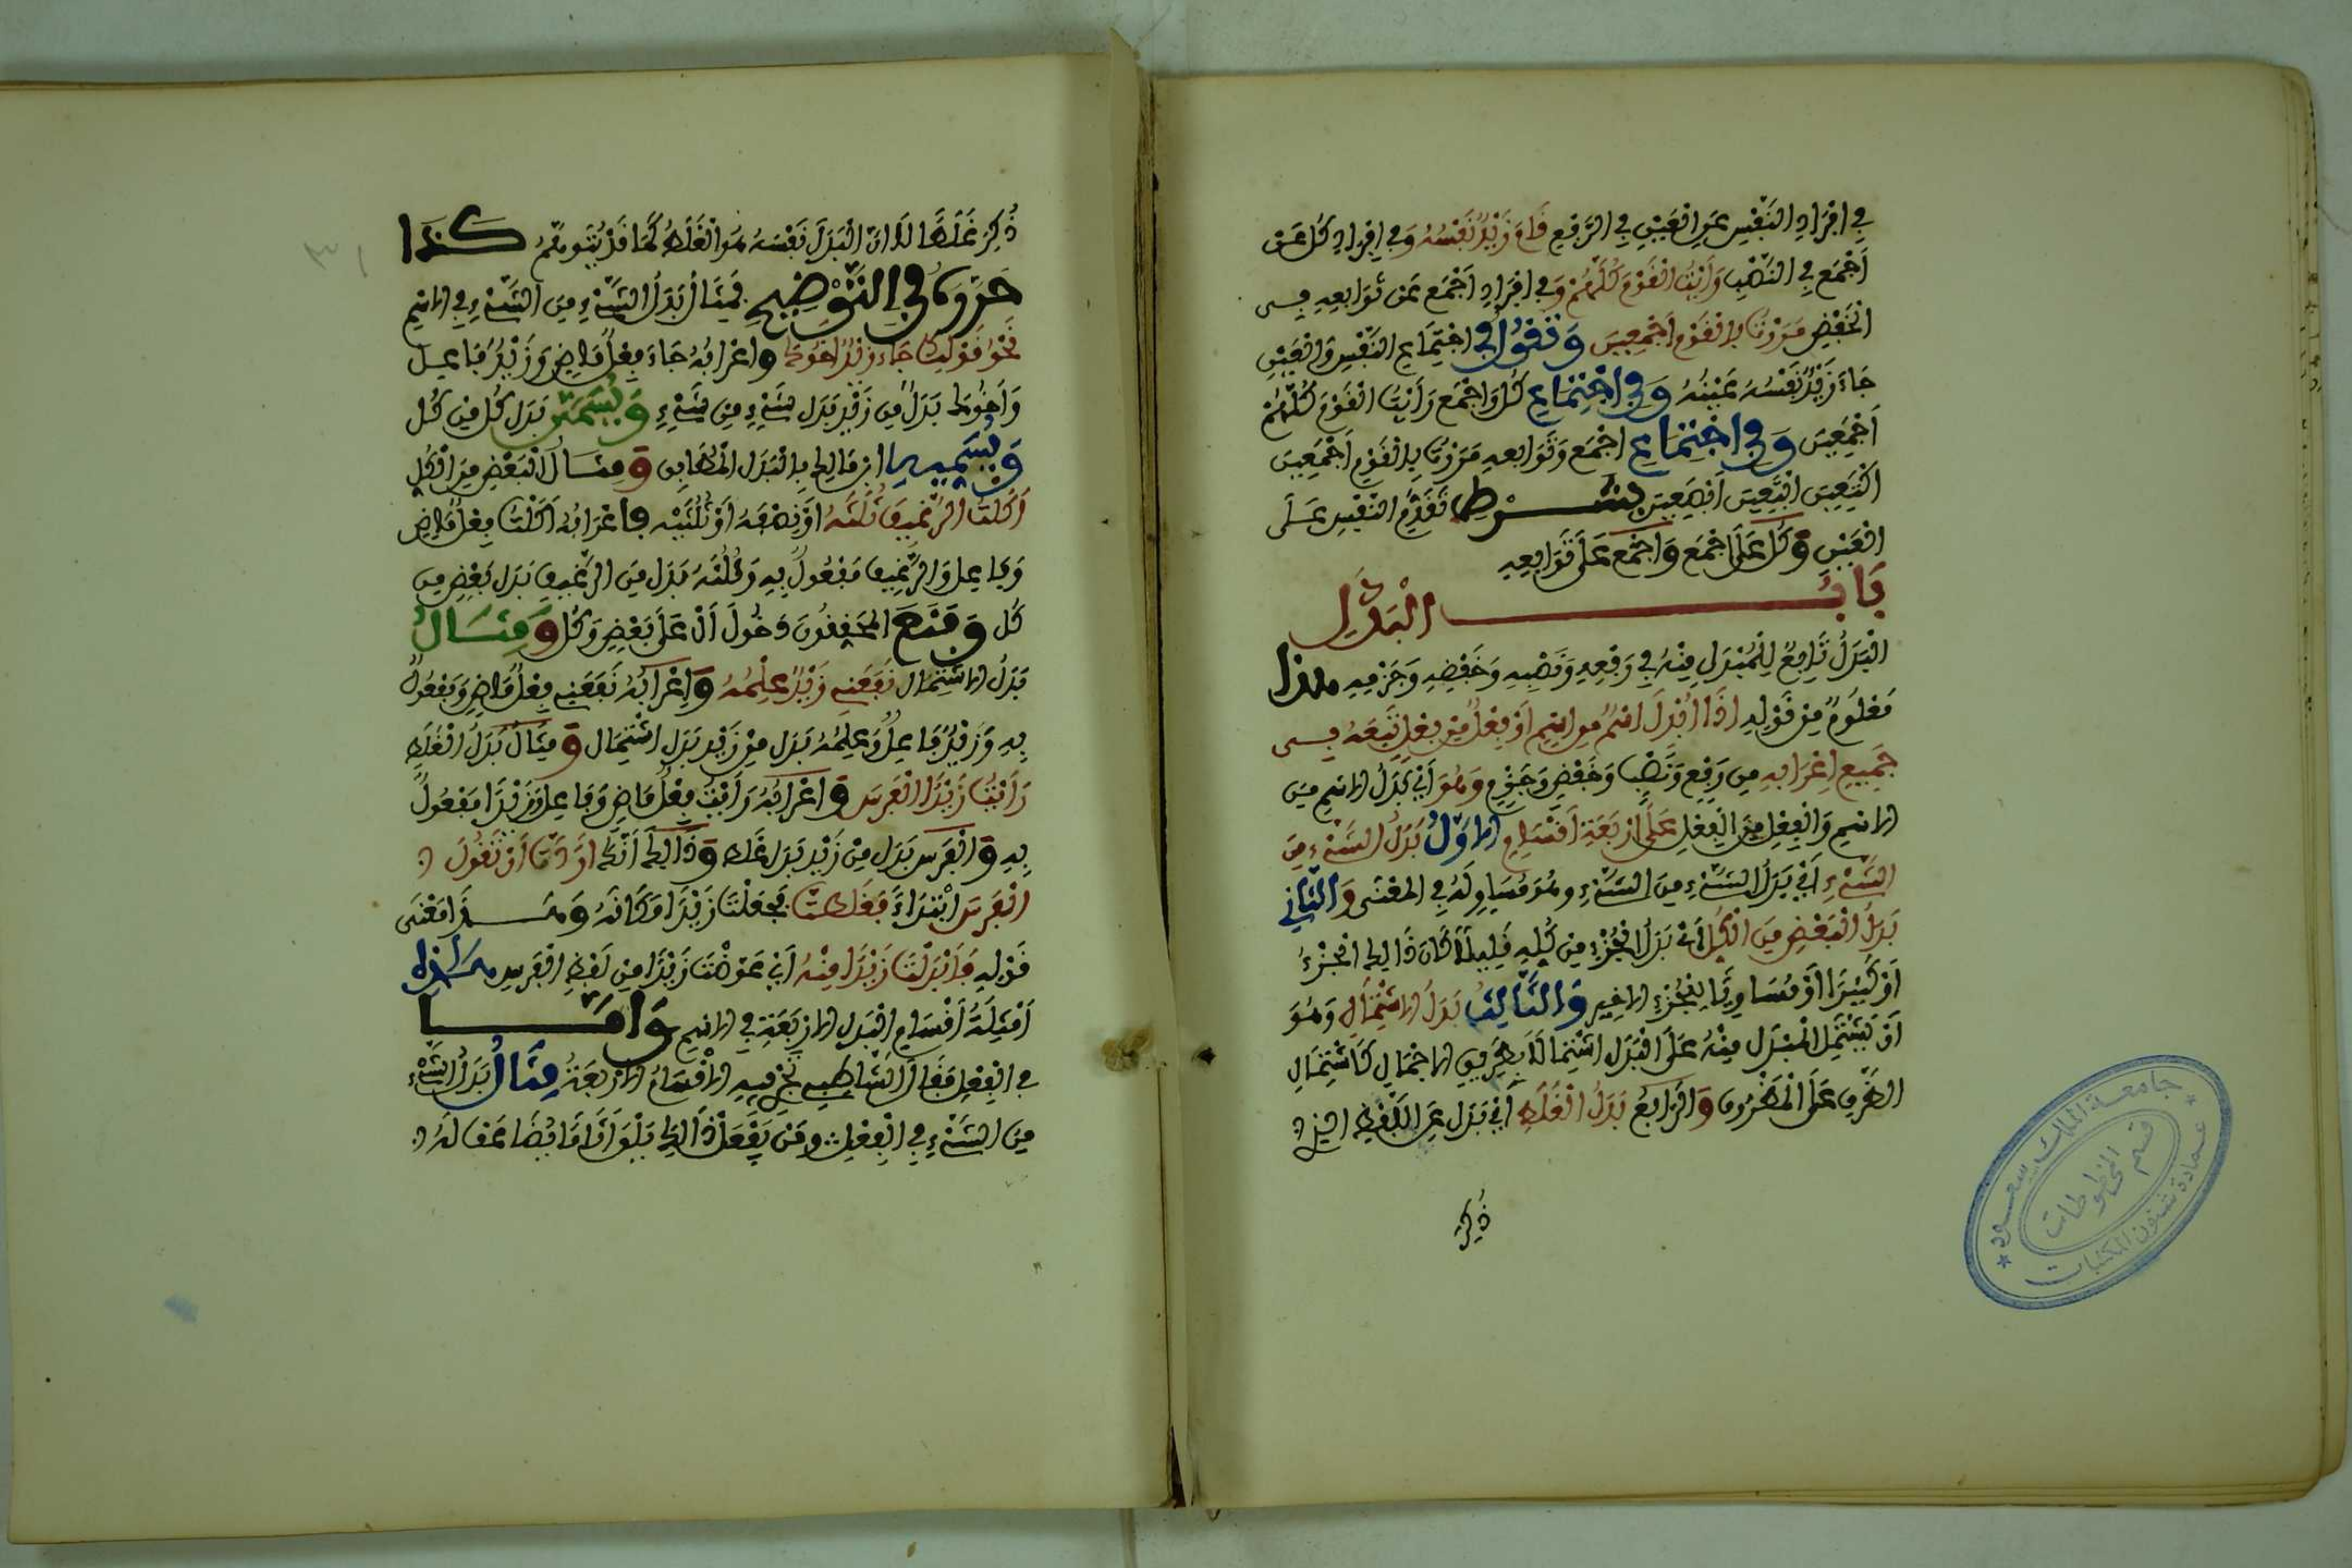 في افراد النفس عن العين في الرفع قام زيد نفسه وفي افراد كل عن
اجمع في النصب رايت القوم كلهم وفي افراد اجمع عن توابعه في
الخفض مررت بالقوم اجمعين وتقول في اجتماع النفس والعين
جاء زيد نفسه عينه وفي اجتماع كل واجمع رايت القوم كلهم
اجمعين وفي اجتماع اجمع وتوابعه مررت بالقوم اجمعين
اكتعين ابتعين ابصعين بشرط تقدم النفس على
العين وكل على اجمع واجمع على توابعه
باب البدل
البدل تابع للمبدل منه في رفعه ونصبه وخفضه وجزمه هذا
معلوم من قوله اذا ابدل اسم من اسم او فعل من فعل تبعه في
جميع اعرابه من رفع ونصب وخفض وجزم وهو اي بدل الاسم من
الاسم والفعل من الفعل على اربعة اقسام الاول بدل الشيء من
الشيء اي بدل الشيء من الشيء وهو مساو له في المعنى والثاني
بدل البعض من الكل اي بدل الجزء من كله قليلا كان ذالك الجزء
او كثيرا او مساويا للجزء الاخير والثالث بدل الاشتمال وهو
ان يشتمل المبدل منه على البدل اشتمالا بطريق الاجمال كاشتمال
الظرف على المظروف والرابع بدل الغلط اي بدل عن اللفظ الذي
ذكر
جامعة الملك سعود
قسم المخطوطات
عمادة شئون المكتبات
٣١
ذكر غلطا لا ان البدل نفسه هو الغلط كما قد يتوهم كذا
حرره في التوضيح فمثال بدل الشيء من الشيء في الاسم
نحو قولك جاء زيد اخوك واعرابه جاء فعل ماض وزيد فاعل
واخوك بدل من زيد بدل شيء من شيء ويسمى بدل كل من كل
ويسميه ابن مالك بالبدل المطابق ومثال البعض من الكل
اكلت الرغيف ثلثه او نصفه او ثلثيه واعرابه اكلت فعل ماض
وفاعل والرغيف مفعول به وثلثه بدل من الرغيف بدل بعض من
كل ومنع المحققون دخول ال على بعض وكل ومثال
بدل الاشتمال نفعني زيد علمه واعرابه نفعني فعل ماض ومفعول
به وزيد فاعل وعلمه بدل من زيد بدل اشتمال ومثال بدل الغلط
رايت زيدا الفرس واعرابه رايت فعل ماض وفاعل وزيدا مفعول
به والفرس بدل من زيد بدل غلط وذالك انك اردت ان تقول
الفرس ابتداء فغلطت فجعلت زيدا مكانه وهذا معنى
قوله فابدلت زيدا منه اي عوضت زيدا من لفظ الفرس هذه
امثلة اقسام البدل الاربعة في الاسم واما
في الفعل فقال الشاطبي تجري فيه الاقسام الاربعة مثال بدل الشيء
من الشيء في الفعل ومن يفعل ذالك يلق اثاما يضاعف له